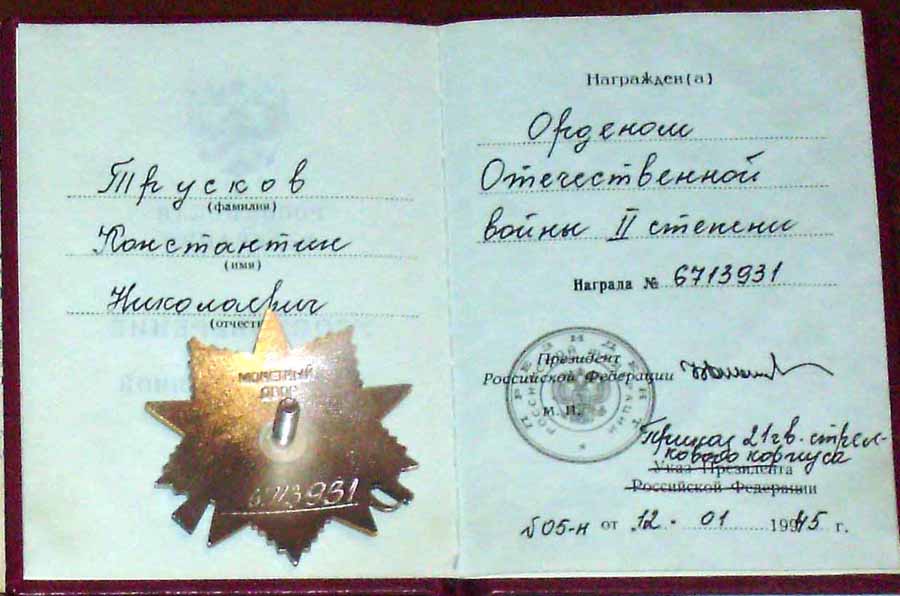 Трусков
(фамилия)
Константин
(имя)
Николаевич
(отчест
МОНЕТНЫЙ
ДВОР
6713931
Награжден(а)
Орденом
Отечественной
войны II степени
Награда № 6713931
Президент
Российской Федерации
М. П.
ПРЕЗИДЕНТ
РОССИЙСКОЙ ФЕДЕРАЦИИ
Приказ 21 гв. стрел-
кового корпуса
Указ Президента
Российской Федерации
№ 05-н от 12 · 01 199445 г.